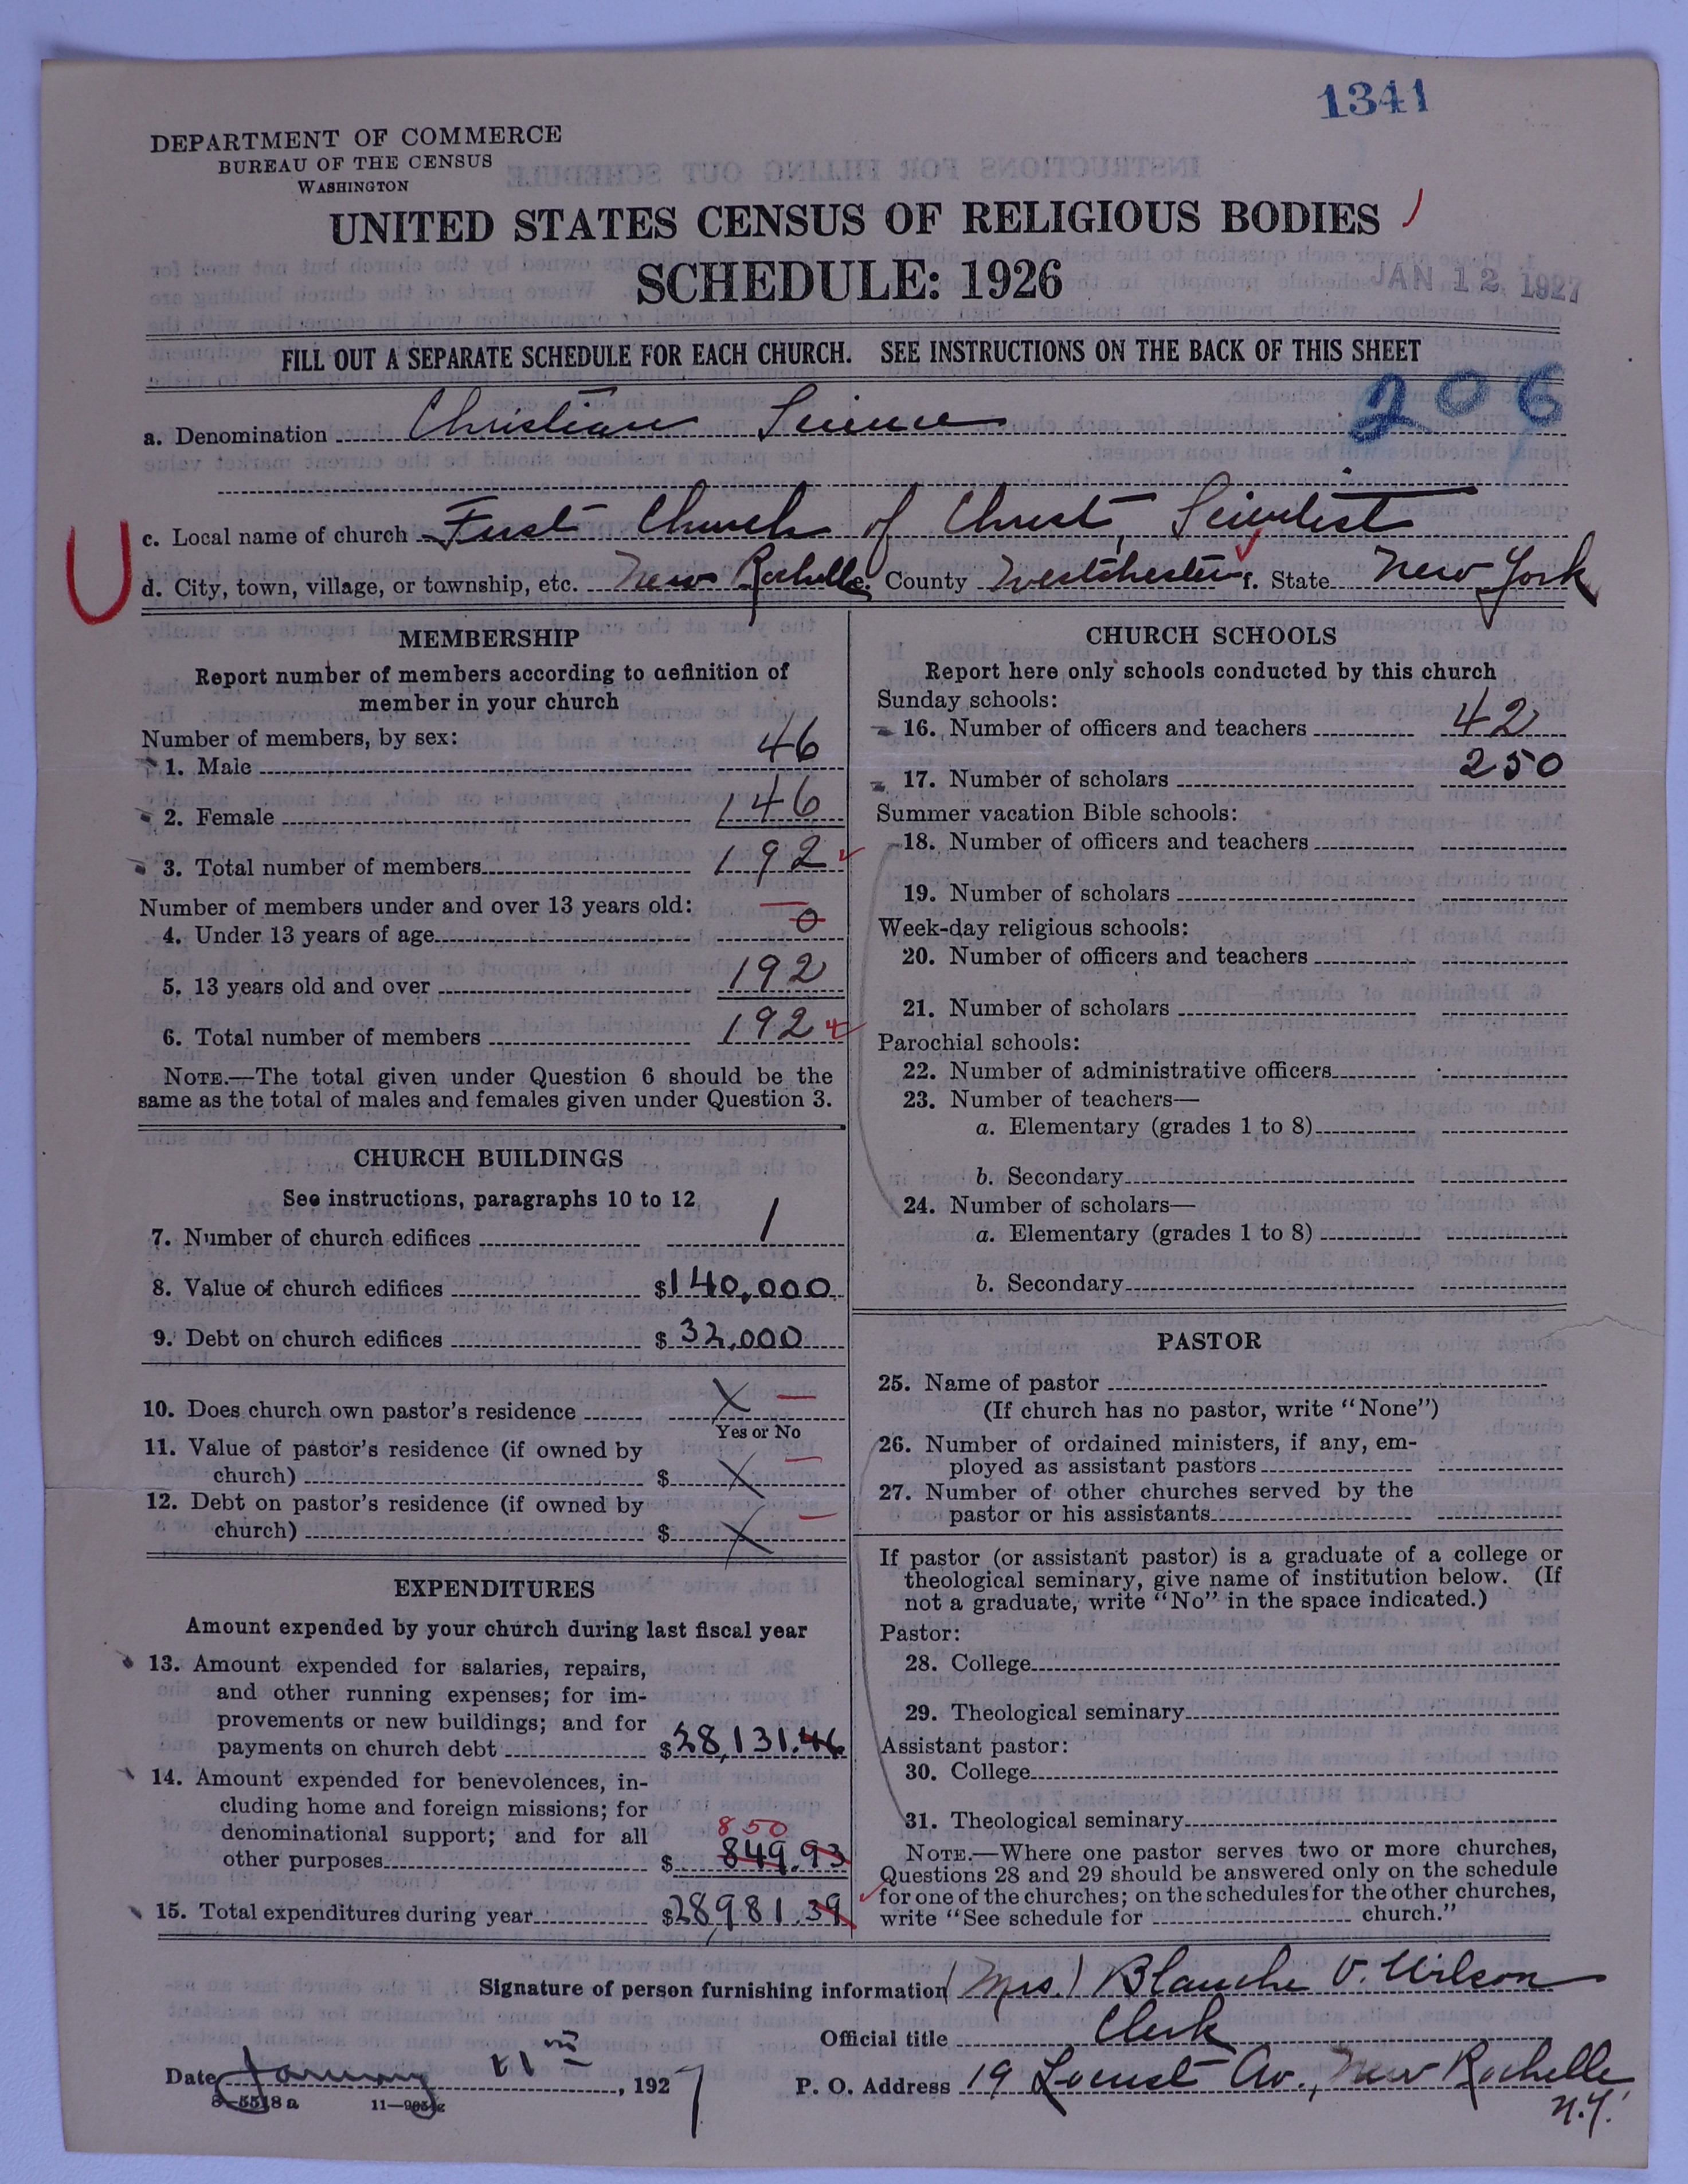 1341
DEPARTMENT OF COMMERCE
BUREAU OF THE CENSUS
WASHINGTON
UNITED STATES CENSUS OF RELIGIOUS BODIES
SCHEDULE: 1926
JAN 12 1927
FILL OUT A SEPARATE SCHEDULE FOR EACH CHURCH. SEE INSTRUCTIONS ON THE BACK OF THIS SHEET
206
a. Denomination Christian Science
c. Local name of church First Church of Christ, Scientist
d. City, town, village, or township, etc. New Rochelle e. County Westchester f. State New York
MEMBERSHIP
Report number of members according to definition of
member in your church
Number of members, by sex:
1. Male 46
2. Female 146
3. Total number of members 192
Number of members under and over 13 years old:
4. Under 13 years of age 0
5. 13 years old and over 192
6. Total number of members 192
NOTE.—The total given under Question 6 should be the
same as the total of males and females given under Question 3.
CHURCH BUILDINGS
See instructions, paragraphs 10 to 12
7. Number of church edifices 1
8. Value of church edifices $140,000
9. Debt on church edifices $ 32,000
10. Does church own pastor's residence X
Yes or No
11. Value of pastor's residence (if owned by
church) $ X
12. Debt on pastor's residence (if owned by
church) $ X
EXPENDITURES
Amount expended by your church during last fiscal year
13. Amount expended for salaries, repairs,
and other running expenses; for im-
provements or new buildings; and for
payments on church debt $28,131.46
14. Amount expended for benevolences, in-
cluding home and foreign missions; for
denominational support; and for all
850
other purposes $ 849.93
15. Total expenditures during year $28,981.39
CHURCH SCHOOLS
Report here only schools conducted by this church
Sunday schools:
16. Number of officers and teachers 42
17. Number of scholars 250
Summer vacation Bible schools:
18. Number of officers and teachers
19. Number of scholars
Week-day religious schools:
20. Number of officers and teachers
21. Number of scholars
Parochial schools:
22. Number of administrative officers
23. Number of teachers—
a. Elementary (grades 1 to 8)
b. Secondary
24. Number of scholars—
a. Elementary (grades 1 to 8)
b. Secondary
PASTOR
25. Name of pastor
(If church has no pastor, write "None")
26. Number of ordained ministers, if any, em-
ployed as assistant pastors
27. Number of other churches served by the
pastor or his assistants
If pastor (or assistant pastor) is a graduate of a college or
theological seminary, give name of institution below. (If
not a graduate, write "No" in the space indicated.)
Pastor:
28. College
29. Theological seminary
Assistant pastor:
30. College
31. Theological seminary
NOTE.—Where one pastor serves two or more churches,
Questions 28 and 29 should be answered only on the schedule
for one of the churches; on the schedules for the other churches,
write "See schedule for church."
Signature of person furnishing information (Mrs.) Blanche V. Wilson
Official title Clerk
Date January 11th, 1927
P. O. Address 19 Locust Av., New Rochelle
N.Y.
8—5518 a